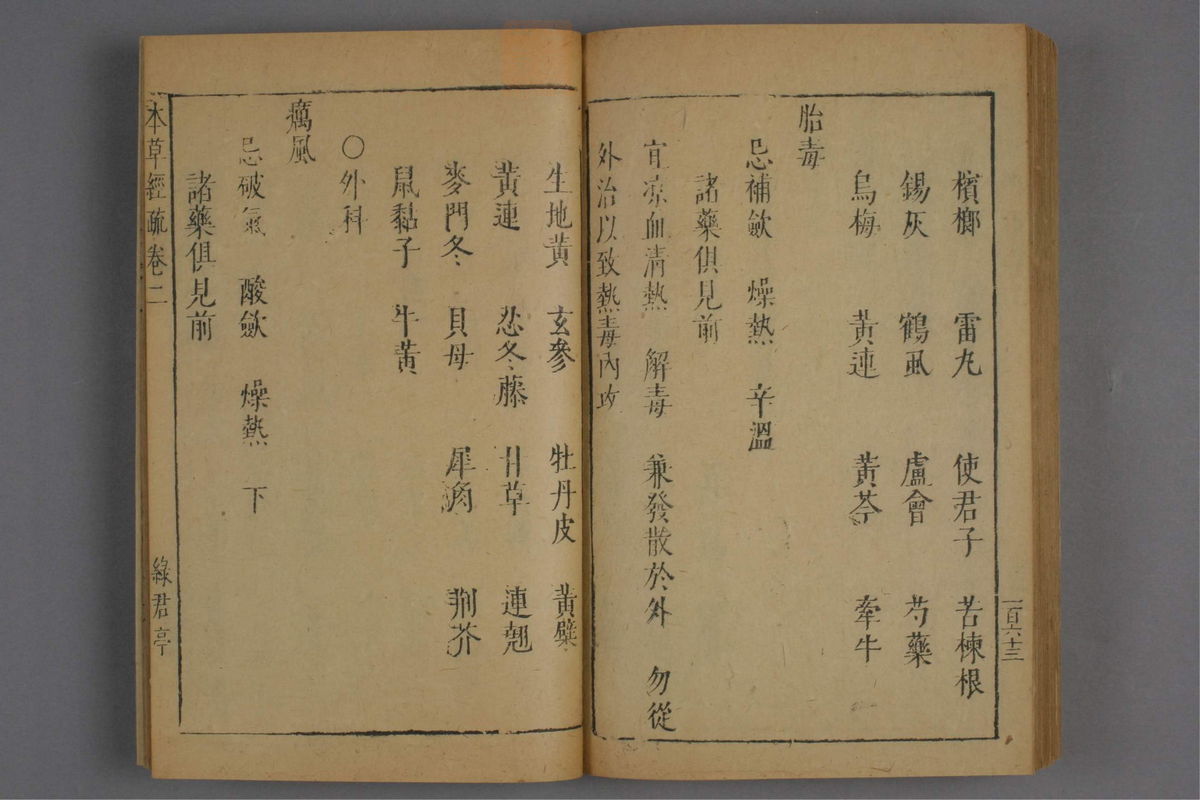 一百六十三
檳榔　雷丸　使君子　苦楝根
錫灰　鶴虱　盧會　芍藥
烏梅　黃連　黃芩　牽牛
胎毒
忌補斂　燥熱　辛溫
諸藥俱見前
宜凉血清熱　解毒　兼發散於外　勿從
外治以致熱毒內攻
生地黃　玄參　牡丹皮　黃檗
黃連　忍冬藤　甘草　連翹
麥門冬　貝母　犀角　荆芥
鼠黏子　牛黃
○外科
癘風
忌破氣　酸斂　燥熱　下
諸藥俱見前
本草經疏卷二　綠君亭